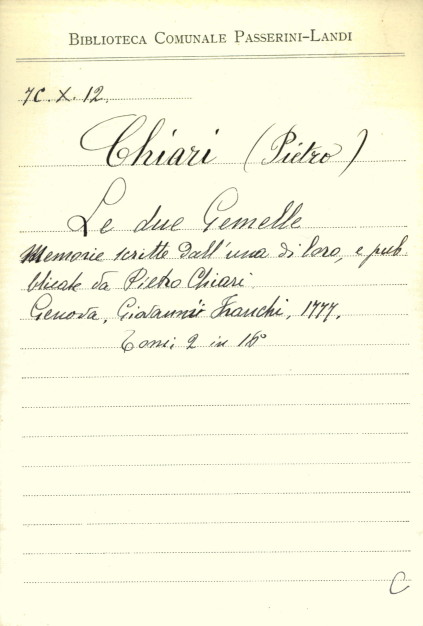 BIBLIOTECA COMUNALE PASSERINI-LANDI
7C. X. 12.
Chiari (Pietro)
Le due Gemelle
Memorie scritte dall'una di loro, e pub
blicate da Pietro Chiari.
Genova, Giovanni Franchi, 1777.
Tomi 2 in 16°
C